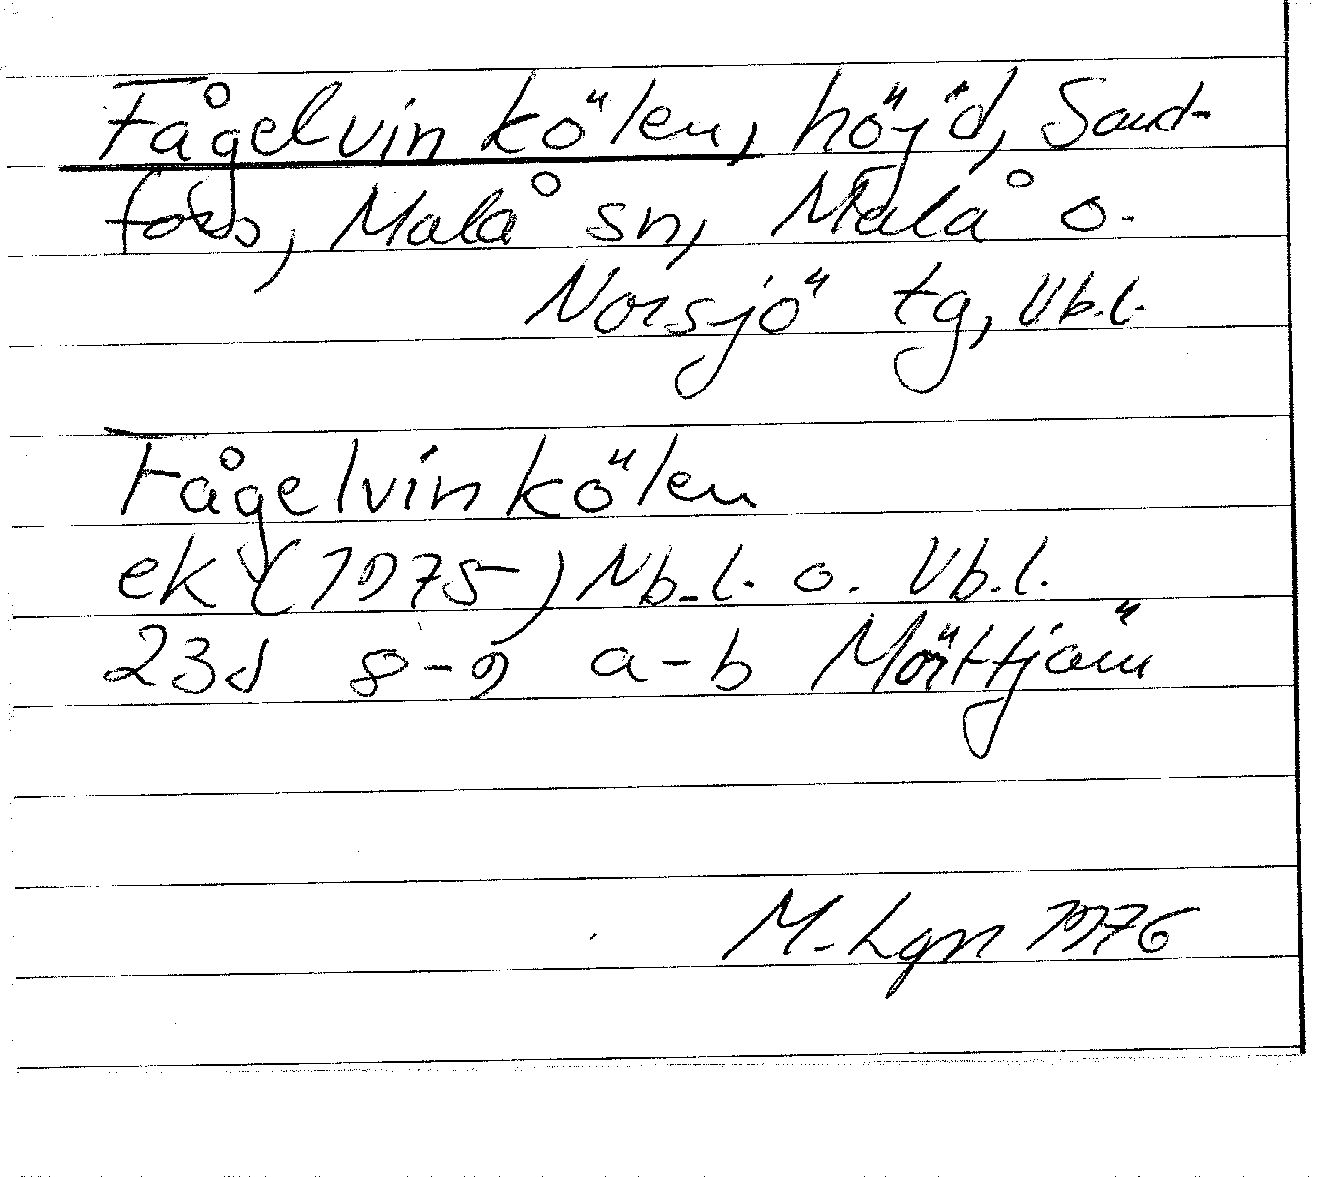 Fågelvinkölen, höjd, Sand-
fors, Malå sn, Malå o.
Norsjö tg, Vb.l.
Fågelvinkölen
ek (1975) Nb.l. o. Vb.l.
23J 8-9 a-b Mörttjärn
M. Lgn 1976